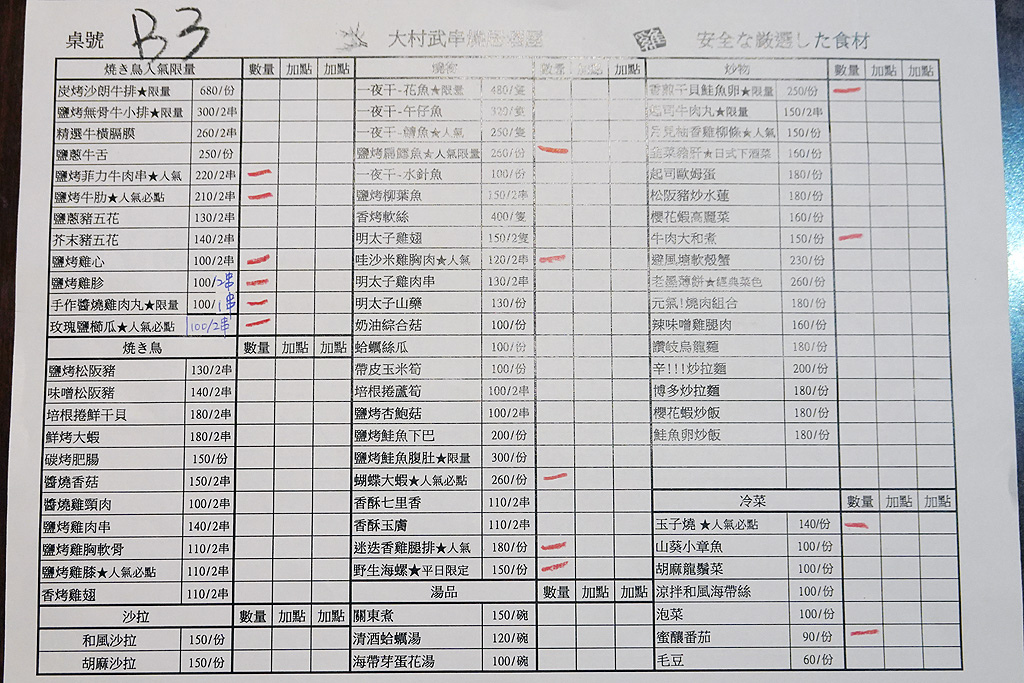 桌號 B3 大村武串燒 安全な厳選した食材
焼き鳥人氣限量 數量 加點 加點
炭烤沙朗牛排★限量 680/份
鹽烤無骨牛小排★限量 300/2串
精選牛橫膈膜 260/2串
鹽蔥牛舌 250/份
鹽烤菲力牛肉串★人氣 220/2串 一
鹽烤牛肋★人氣必點 210/2串 一
鹽蔥豬五花 130/2串
芥末豬五花 140/2串
鹽烤雞心 100/2串 一
鹽烤雞胗 100/2串 一
手作醬燒雞肉丸★限量 100/1串 一
玫瑰鹽櫛瓜★人氣必點 100/2串 一
焼き鳥 數量 加點 加點
鹽烤松阪豬 130/2串
味噌松阪豬 140/2串
培根捲鮮干貝 180/2串
鮮烤大蝦 180/2串
碳烤肥腸 150/份
醬燒香菇 150/2串
醬燒雞頸肉 100/2串
鹽烤雞肉串 140/2串
鹽烤雞胸軟骨 110/2串
鹽烤雞膝★人氣必點 110/2串
香烤雞翅 110/2串
沙拉 數量 加點 加點
和風沙拉 150/份
胡麻沙拉 150/份
數量 加點 加點
一夜干-花魚★限量 480/隻
一夜干-午仔魚 320/隻
一夜干-鯖魚★人氣 250/隻
鹽烤扁鱈魚★人氣限量 260/份 一
一夜干-水針魚 100/份
鹽烤柳葉魚 150/2串
香烤軟絲 400/隻
明太子雞翅 150/2隻
哇沙米雞胸肉★人氣 120/2串 一
明太子雞肉串 130/2串
明太子山藥 130/份
奶油綜合菇 100/份
蛤蠣絲瓜 100/份
帶皮玉米筍 100/份
培根捲蘆筍 100/2串
鹽烤杏鮑菇 100/2串
鹽烤鮭魚下巴 200/份
鹽烤鮭魚腹肚★限量 300/份
蝴蝶大蝦★人氣必點 260/份 一
香酥七里香 110/2串
香酥玉膚 110/2串
迷迭香雞腿排★人氣 180/份 一
野生海螺★平日限定 150/份 一
湯品 數量 加點 加點
關東煮 150/碗
清酒蛤蠣湯 120/碗
海帶芽蛋花湯 100/碗
炒物 數量 加點 加點
香煎干貝鮭魚卵★限量 250/份 一
起司牛肉丸★限量 150/2串
月見柚香雞柳條★人氣 150/份
韭菜豬肝★日式下酒菜 160/份
起司歐姆蛋 180/份
松阪豬炒水蓮 180/份
櫻花蝦高麗菜 160/份
牛肉大和煮 150/份 一
避風塘軟殼蟹 230/份
老墨薄餅★經典菜色 260/份
元氣!燒肉組合 180/份
辣味噌雞腿肉 160/份
讚岐烏龍麵 180/份
辛!!!炒拉麵 200/份
博多炒拉麵 180/份
櫻花蝦炒飯 180/份
鮭魚卵炒飯 180/份
冷菜 數量 加點 加點
玉子燒 ★人氣必點 140/份 一
山葵小章魚 100/份
胡麻龍鬚菜 100/份
涼拌和風海帶絲 100/份
泡菜 100/份
蜜釀番茄 90/份 一
毛豆 60/份